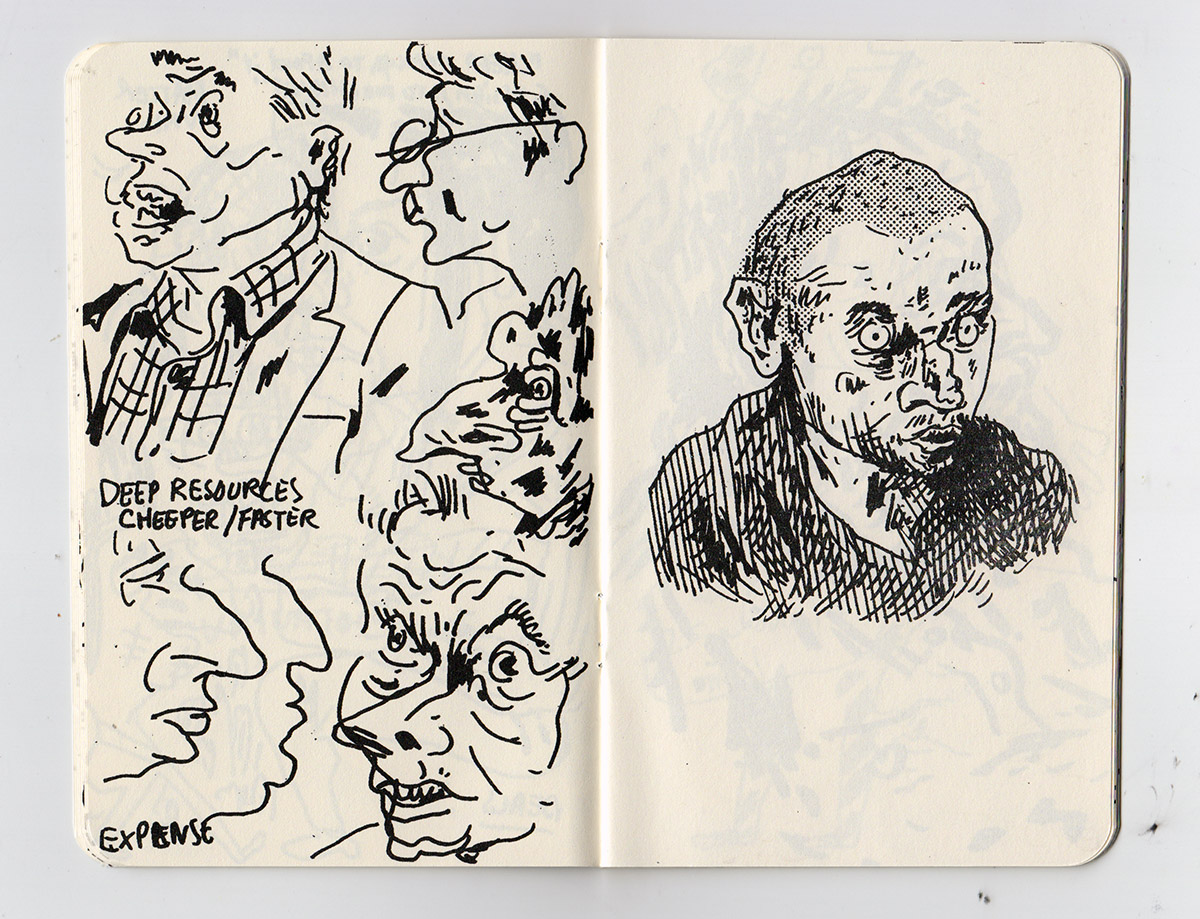 DEEP RESOURCES
CHEEPER/FASTER
EXPENSE